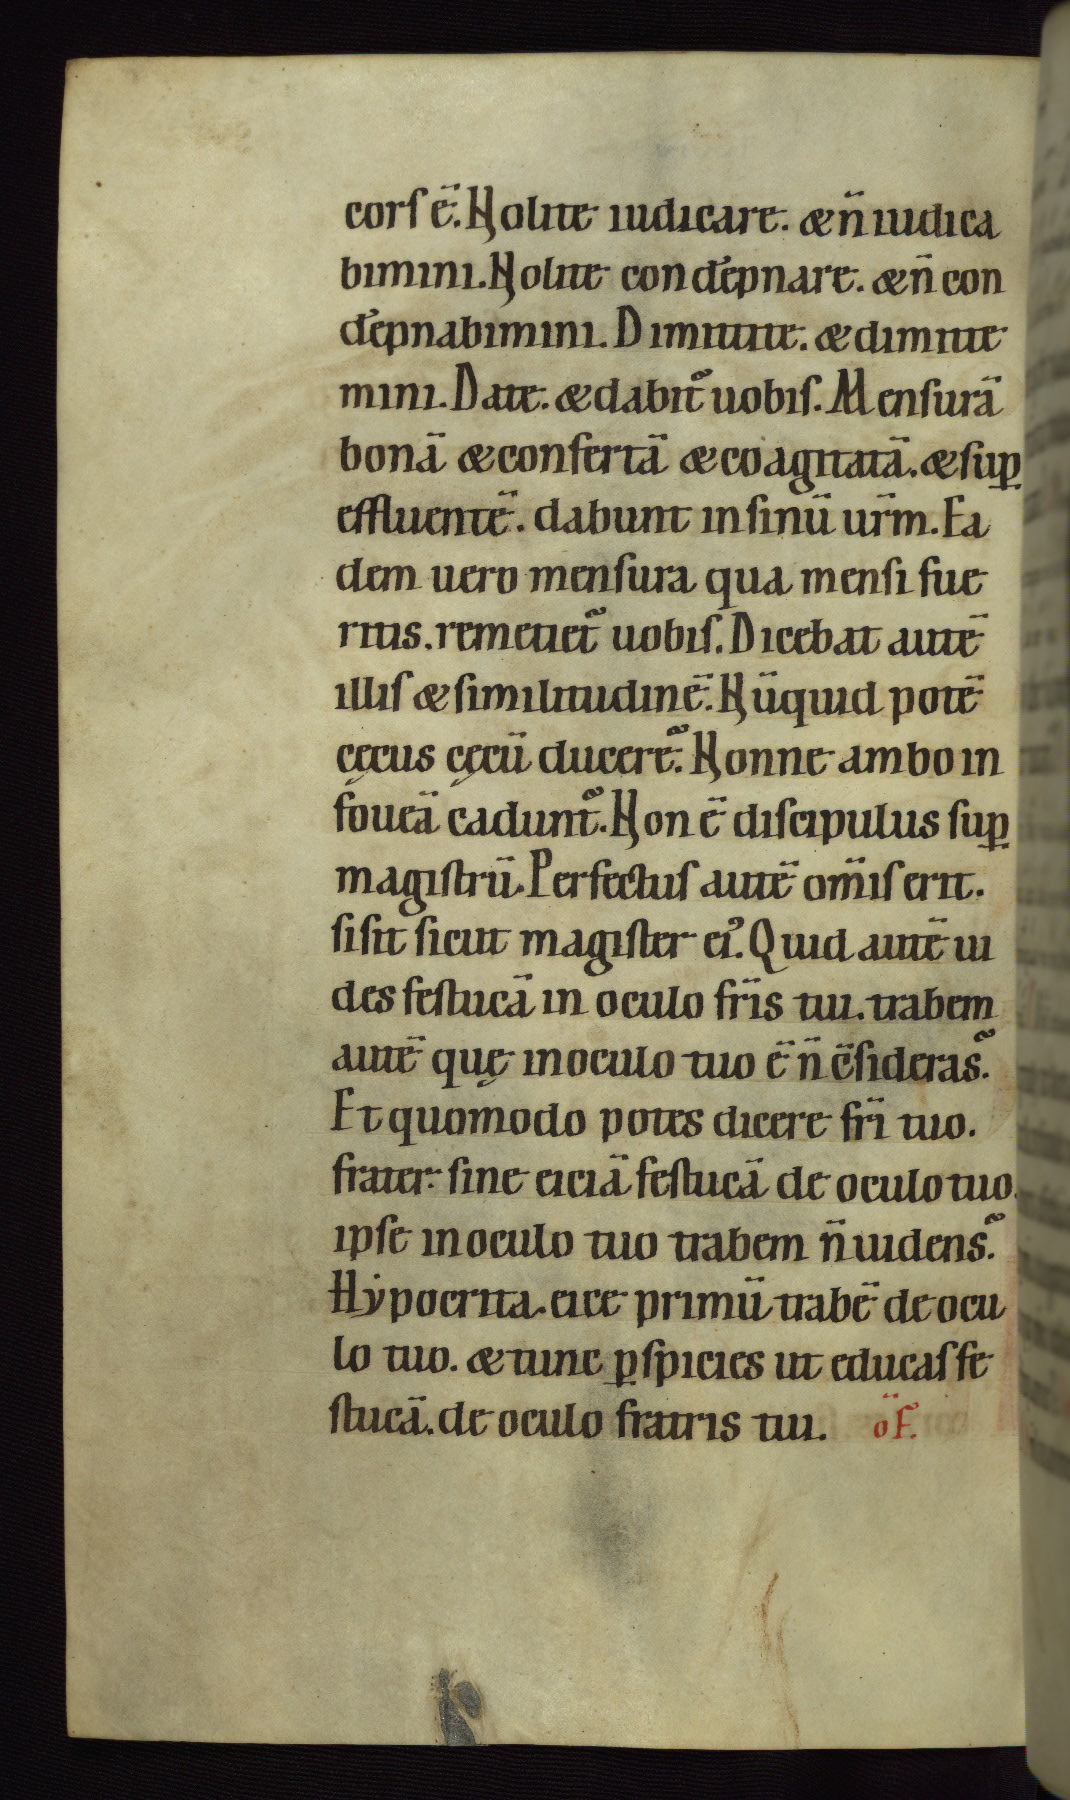 corſ ē. Nolite iudicare. & n̄ iudica
bimini. Nolite condēpnare. & n̄ con
dēpnabimini. Dimittite. & dimitte
mini. Date. & dabit᷑ uobiſ. Menſurā
bonā & confertā & coagitatā. & ſuꝑ
effluentē. dabunt in ſinū ur̄m. Ea
dem uero menſura qua menſi fue
ritis. remetiet᷑ uobiſ. Dicebat autē
illiſ & ſimilitudinē. Nūquid potē
cęcus cęcū ducere᷑. Nonne ambo in
foueā cadunt᷑. Non ē diſcipulus ſuꝑ
magiſtrū. Perfectuſ autē om̄iſ erit.
ſi ſit ſicut magiſter ei᷒. Quid autē ui
des feſtucā in oculo fr̄is tui. trabem
autē quę in oculo tuo ē n̄ c̄ſideras᷑.
Et quomodo potes dicere fr̄i tuo.
frater. ſine eiciā feſtucā de oculo tuo.
ipſe in oculo tuo trabem n̄ uidens᷑.
Hẏpocrita. eice primū trabē de ocu
lo tuo. & tunc ꝑſpicies ut educaſ fe
ſtucā. de oculo fratris tui. oF̄.